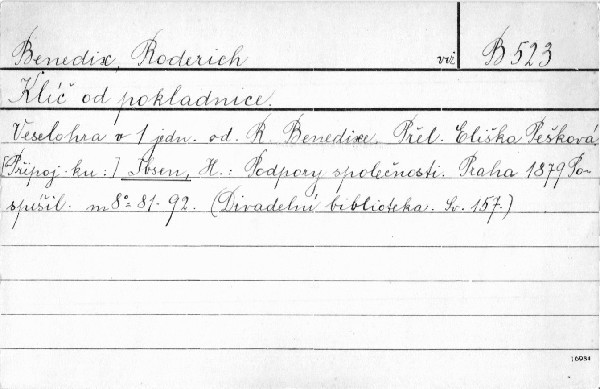 Benedix, Roderich vrž B 523
Klíč od pokladnice.
Veselohra v 1 jedn. od. R Benedixe. Přel. Eliška Pešková.
[Připoj. ku:] Ibsen, H.: Podpory společnosti. Praha 1879 Po-
spíšil. m8° 81-92. (Divadelní biblioteka. Sv. 157.)
16984